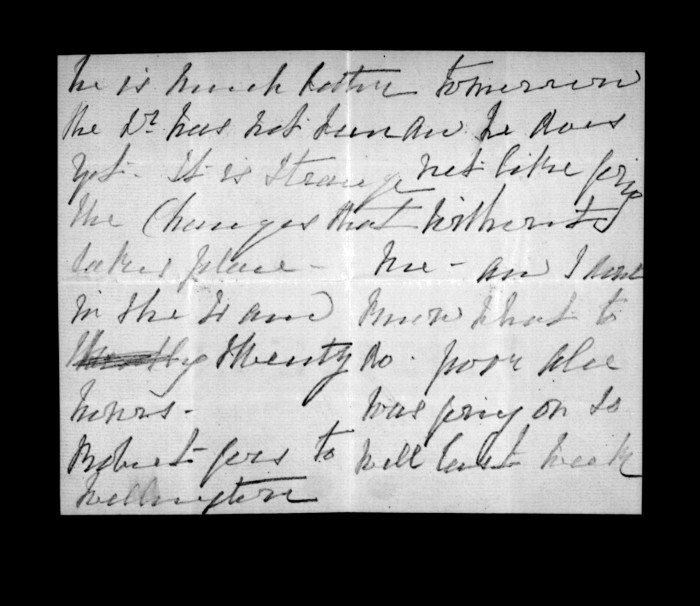 he is much better
the Dr has not been
yet - It is strange
the changes that
takes place -
in the 4 and
twenty
hours -
Robert goes to
Wellington
tomorrow
an he does
not like going
without
me - an I dont
know what to
do. poor Alec
was going on so
well last week